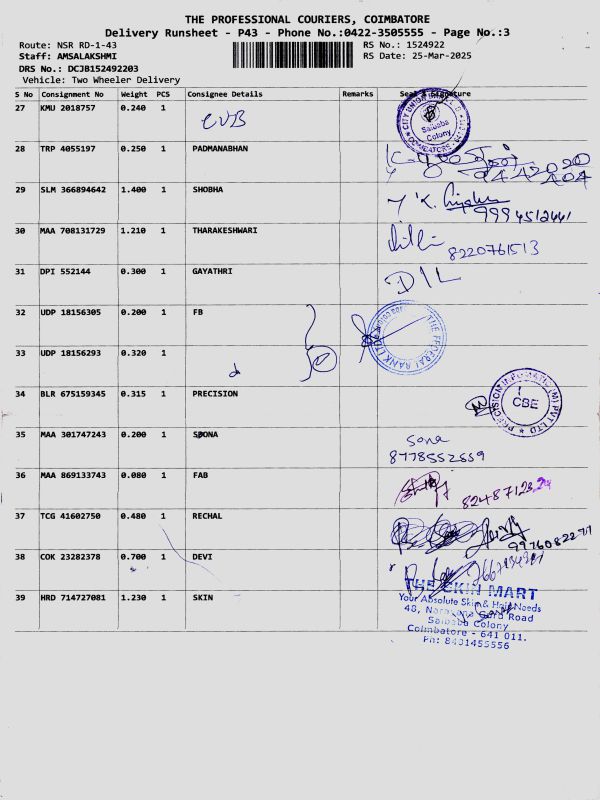 THE PROFESSIONAL COURIERS, COIMBATORE
Delivery Runsheet - P43 - Phone No.:0422-3505555 - Page No.:3
Route: NSR RD-1-43 RS No.: 1524922
Staff: AMSALAKSHMI RS Date: 25-Mar-2025
DRS No.: DCJB152492203
Vehicle: Two Wheeler Delivery
S No Consignment No Weight PCS Consignee Details Remarks Seal & Signature
27 KMU 2018757 0.240 1 CUB
CITY UNION
Saibaba Colony
28 TRP 4055197 0.250 1 PADMANABHAN
29 SLM 366894642 1.400 1 SHOBHA
30 MAA 708131729 1.210 1 THARAKESHWARI
8220761513
31 DPI 552144 0.300 1 GAYATHRI
32 UDP 18156305 0.200 1 FB
THE FEDERAL BANK LTD
33 UDP 18156293 0.320 1
34 BLR 675159345 0.315 1 PRECISION
PRECISION INFOMATIC (M) PVT LTD
CBE
35 MAA 301747243 0.200 1 SOONA
Sona
8778552559
36 MAA 869133743 0.080 1 FAB
37 TCG 41602750 0.480 1 RECHAL
38 COK 23282378 0.700 1 DEVI
39 HRD 714727081 1.230 1 SKIN
THE SKIN MART
Your Absolute Skin & Hair Needs
48, Narayana Guru Road
Saibaba Colony
Coimbatore - 641 011.
Ph: 8431455556